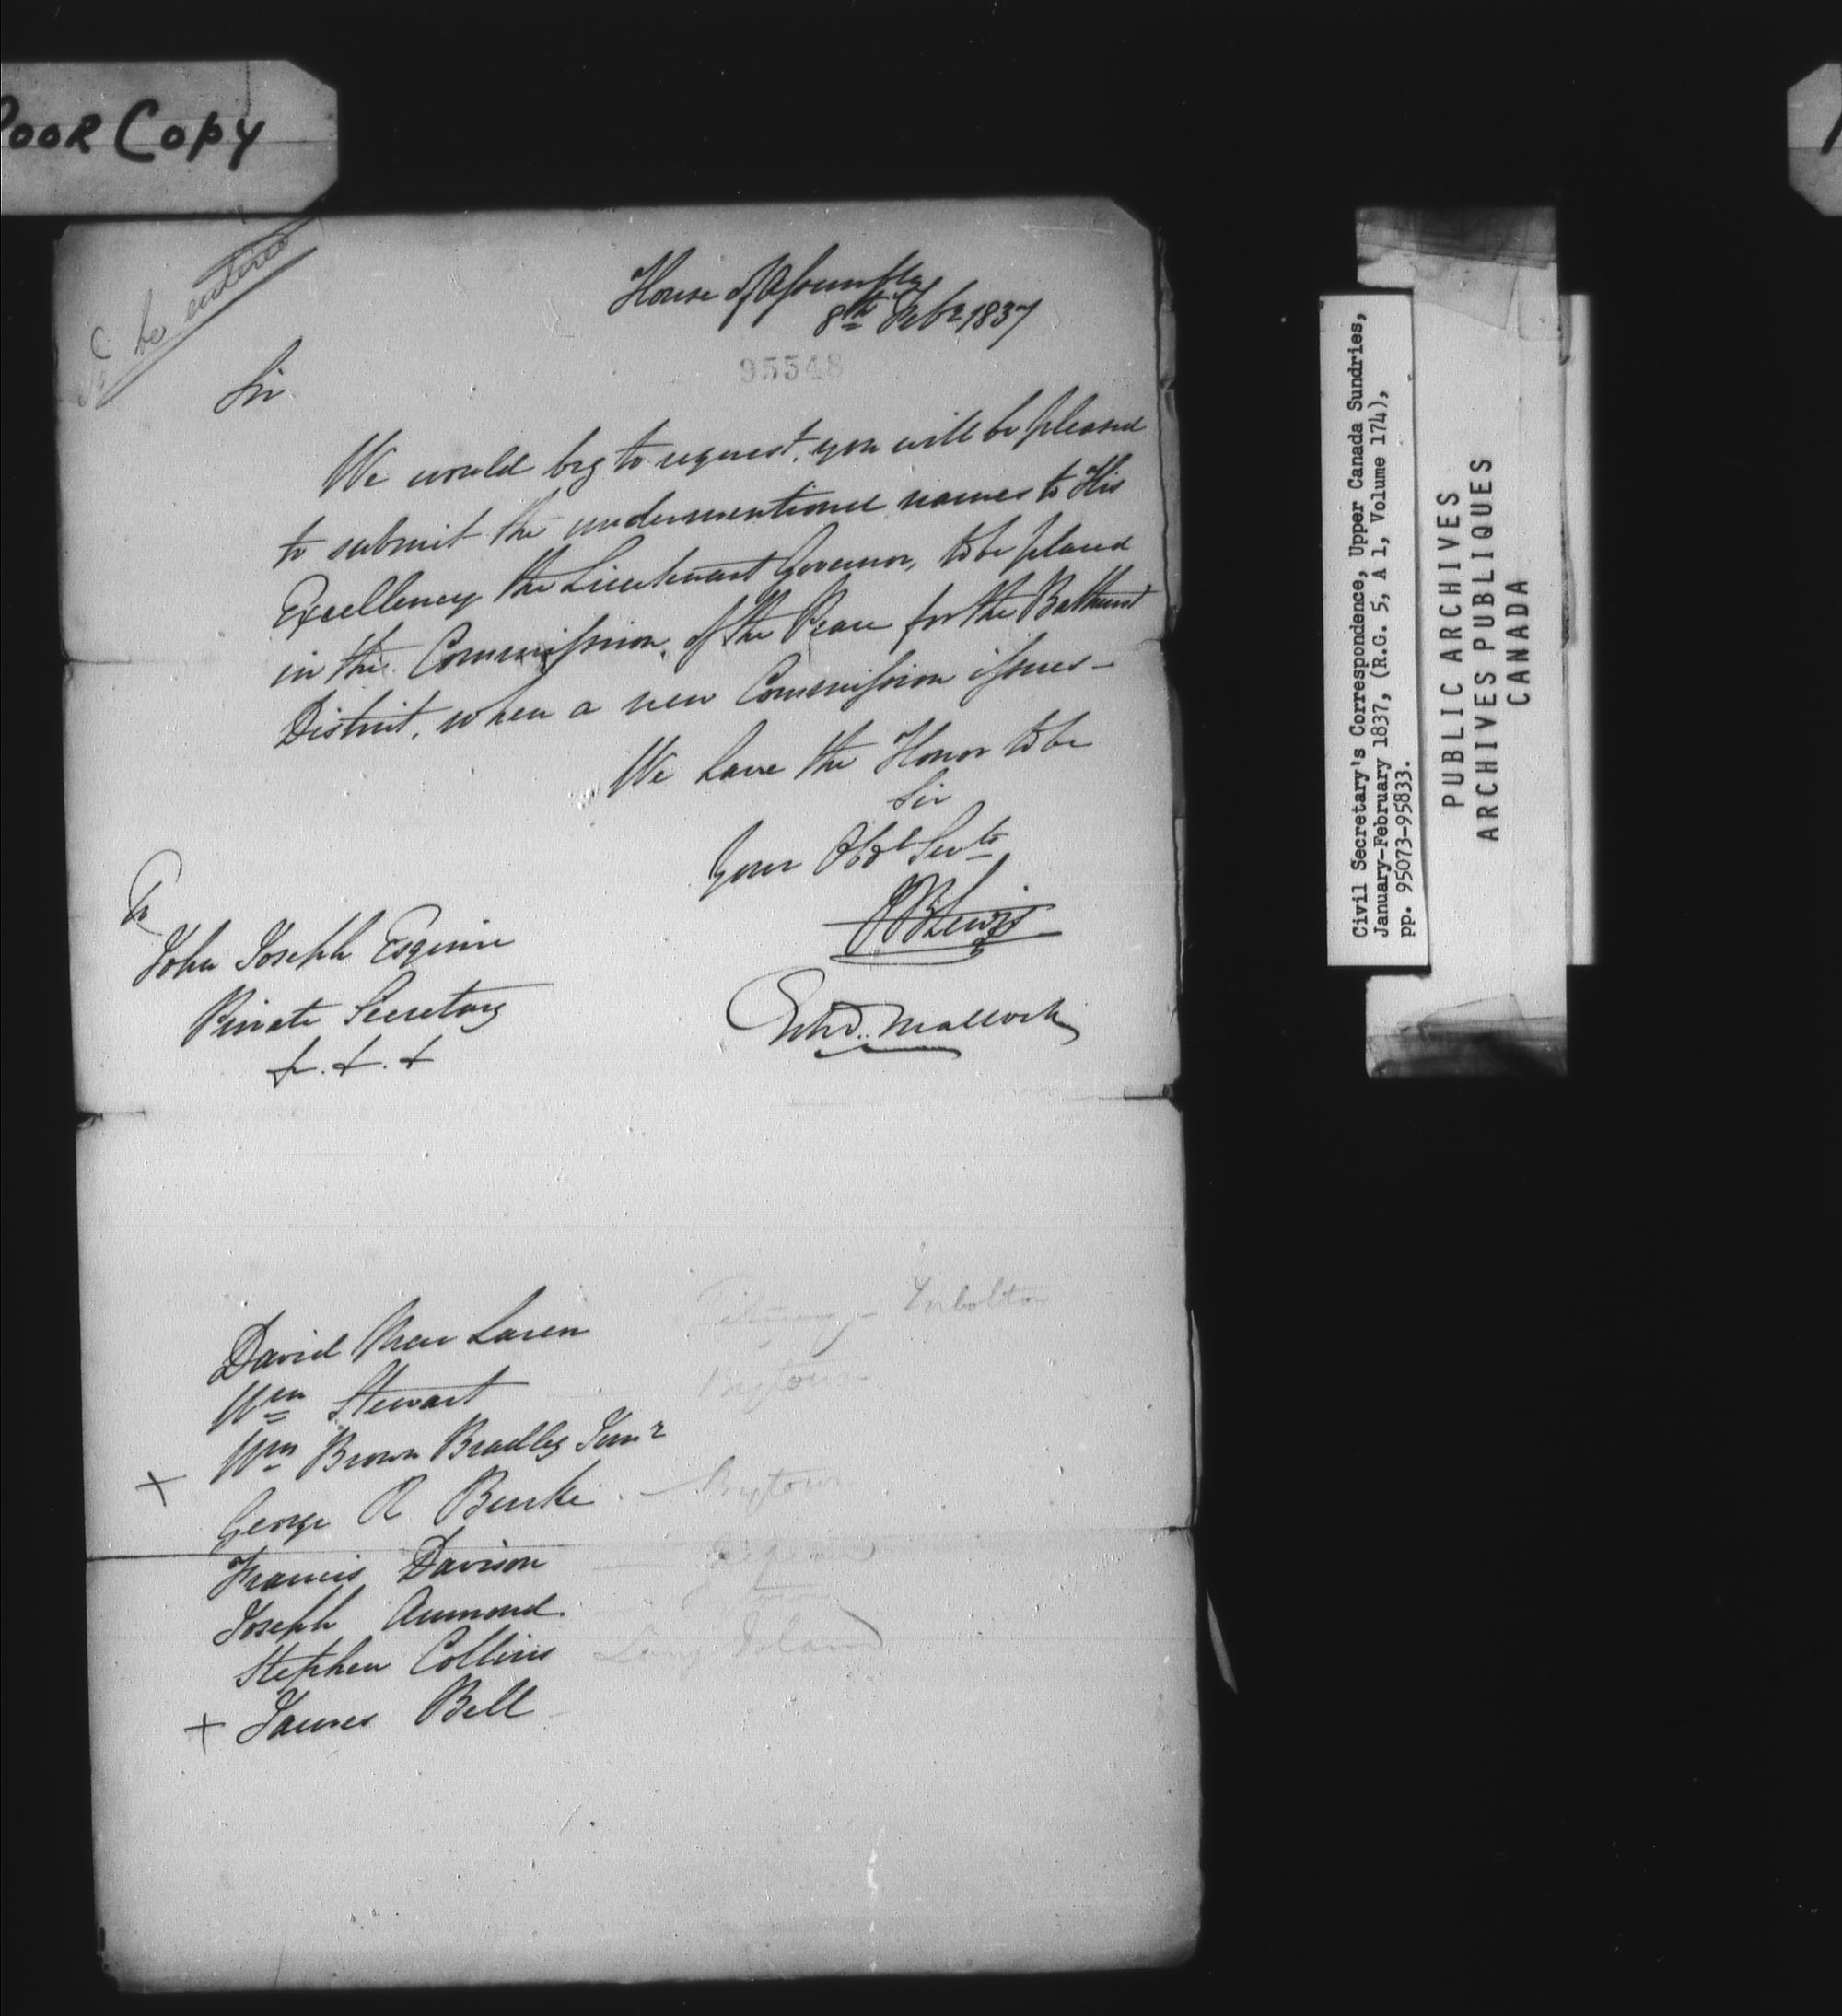 Poor Copy
be entered
House of Assembly
8th Feby 1837
95548
Sir
We would beg to request, you will be pleased
to submit the undermentioned names to His
Excellency the Lieutenant Governor, to be placed
in the Commission, of the Peace for the Bathurst
District, when a new Commission issues—
We have the Honor to be
Sir
Your Obdt Servts
JB Lewis
Edwd. Malloch
To
John Joseph Esquire
Private Secretary
&. &. &
David MacLaren Fitzroy – Torbolton
Wm Stewart Bytown
Wm Brown Bradley Junr
+
George R Burke. — Bytown
Francis Davison —
Joseph Aumond. — Bytown
Stephen Collins Long Island
+ James Bell
Civil Secretary's Correspondence, Upper Canada Sundries,
January-February 1837, (R.G. 5, A 1, Volume 174),
pp. 95073-95833.
PUBLIC ARCHIVES
ARCHIVES PUBLIQUES
CANADA